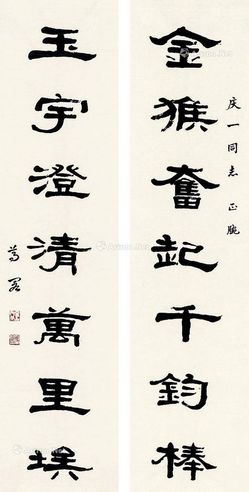 庆一同志 正腕
金猴奮起千鈞棒
玉宇澄清萬里埃